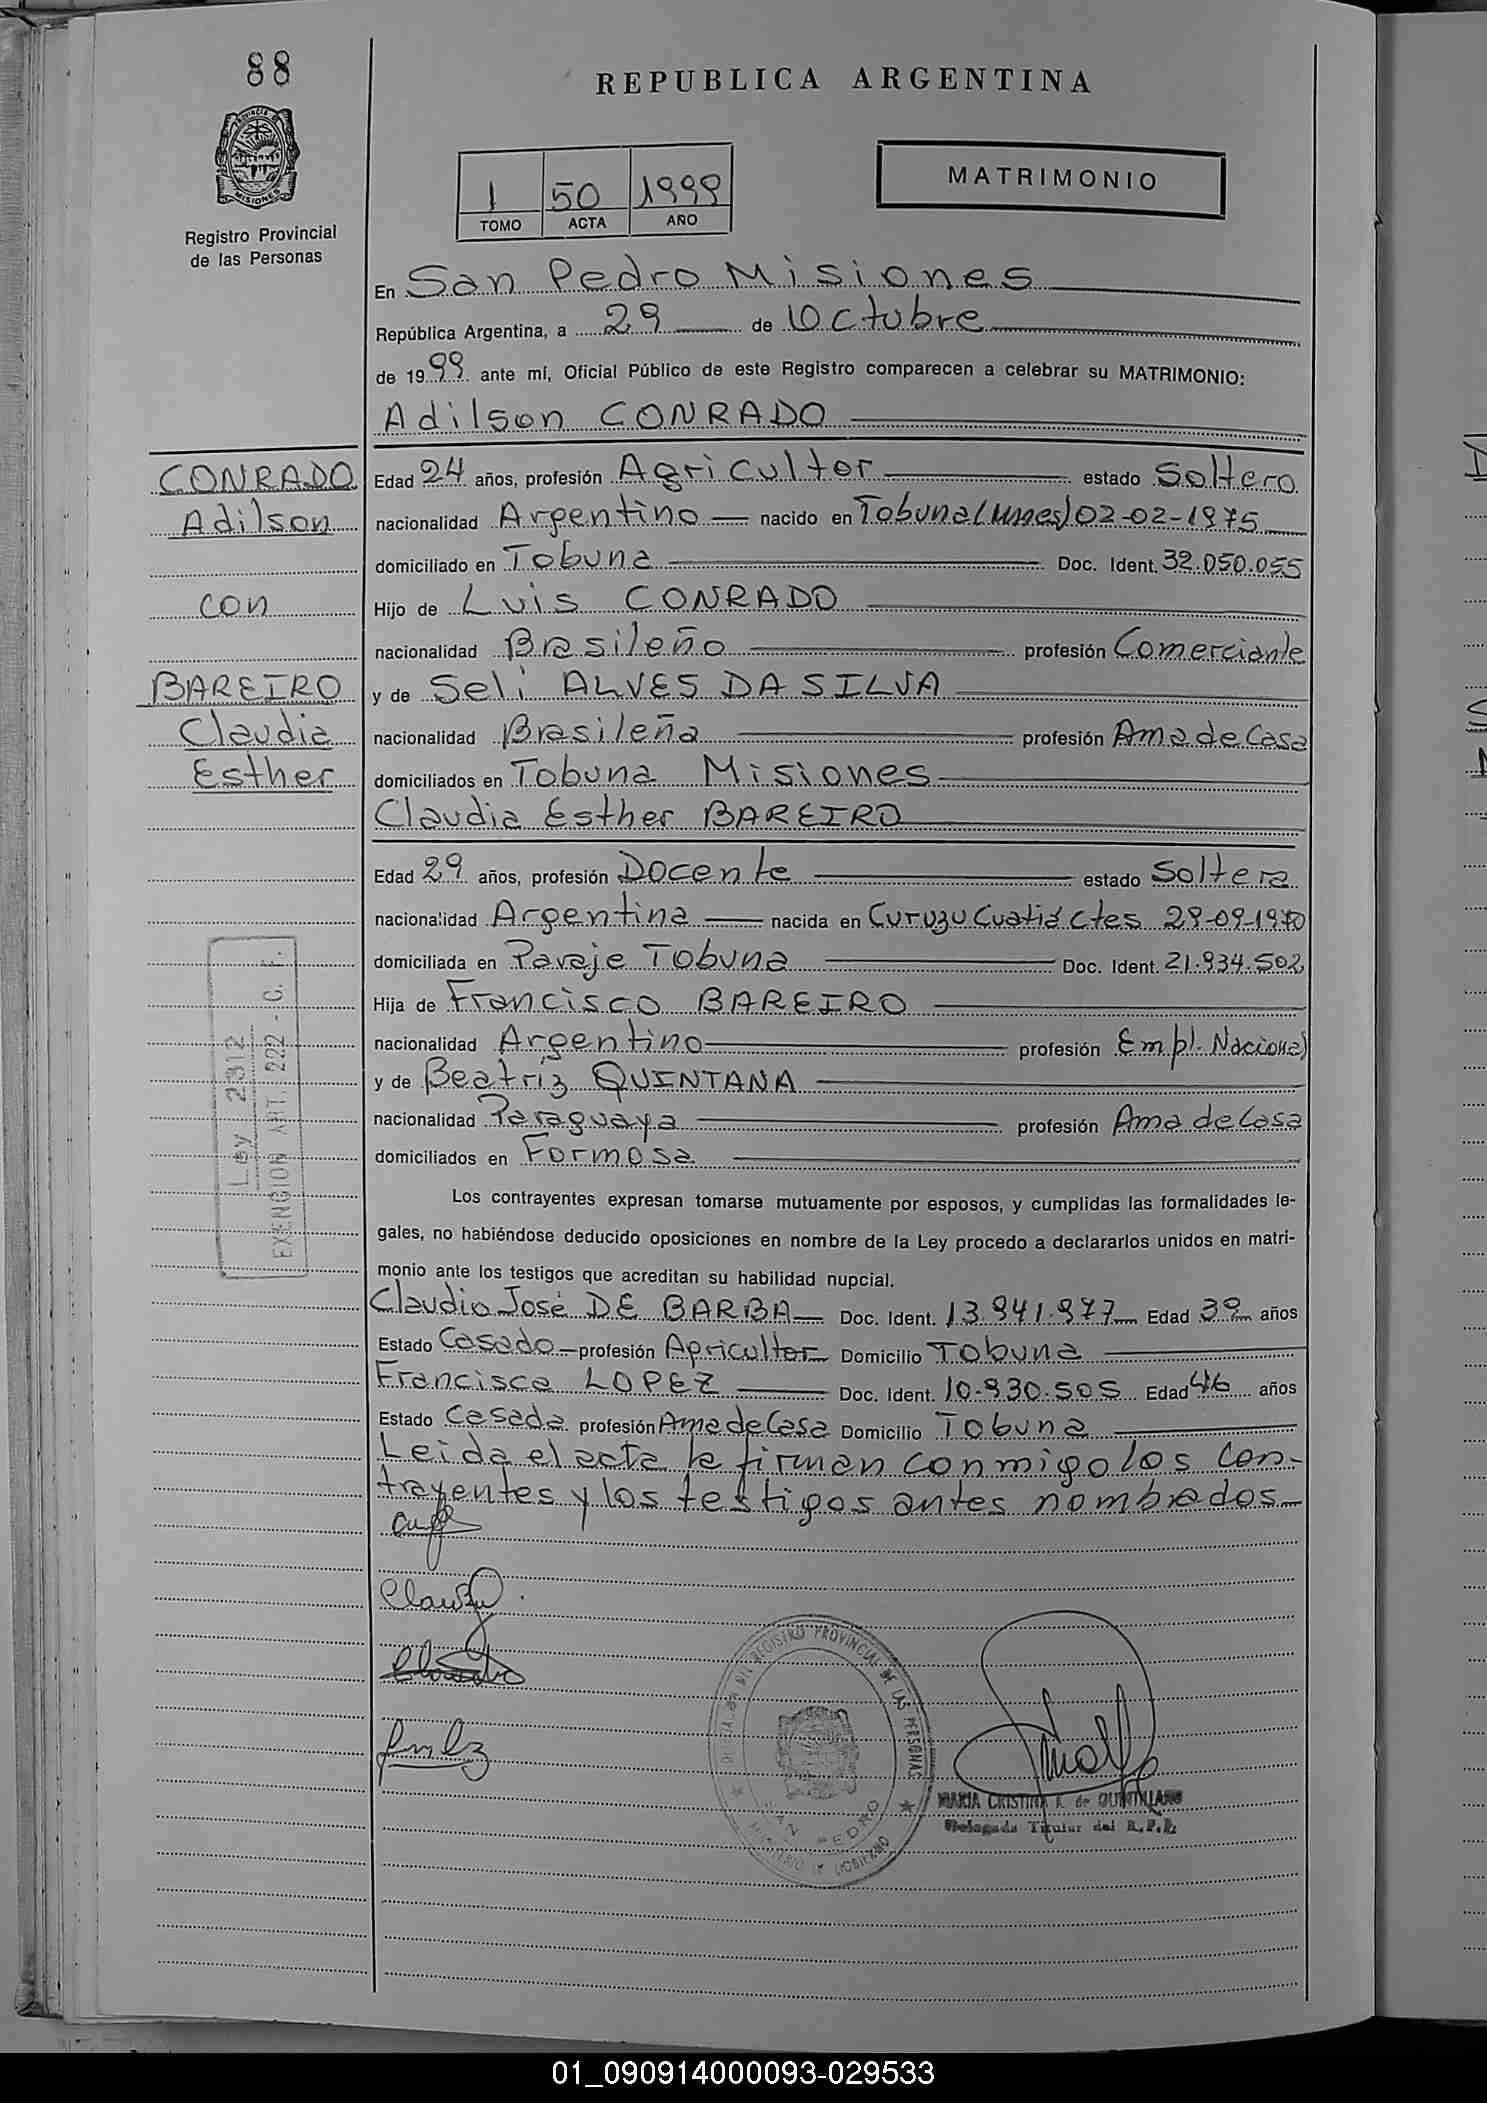 88
REPUBLICA ARGENTINA
PROVINCIA DE MISIONES
Registro Provincial
de las Personas
1 50 1999
TOMO ACTA AÑO
MATRIMONIO
En San Pedro Misiones
República Argentina, a 29 de Octubre
de 1999 ante mí, Oficial Público de este Registro comparecen a celebrar su MATRIMONIO:
Adilson CONRADO
CONRADO
Adilson
con
BAREIRO
Claudia
Esther
Edad 24 años, profesión Agricultor estado Soltero
nacionalidad Argentino nacido en Tobuna (Mnes) 02-02-1975
domiciliado en Tobuna Doc. Ident. 32.050.055
Hijo de Luis CONRADO
nacionalidad Brasileño profesión Comerciante
y de Seli ALVES DA SILVA
nacionalidad Brasileña profesión Ama de Casa
domiciliados en Tobuna Misiones
Claudia Esther BAREIRO
Edad 29 años, profesión Docente estado Soltera
nacionalidad Argentina nacida en Curuzu Cuatiá Ctes 29-09-1970
domiciliada en Paraje Tobuna Doc. Ident. 21.934.502
Hija de Francisco BAREIRO
nacionalidad Argentino profesión Empl. Nacional
y de Beatríz QUINTANA
nacionalidad Paraguaya profesión Ama de Casa
domiciliados en Formosa
Ley 2312
EXENCION ART. 222 - C. F.
Los contrayentes expresan tomarse mutuamente por esposos, y cumplidas las formalidades le-
gales, no habiéndose deducido oposiciones en nombre de la Ley procedo a declararlos unidos en matri-
monio ante los testigos que acreditan su habilidad nupcial.
Claudio José DE BARBA Doc. Ident. 13.941.977 Edad 39 años
Estado Casado profesión Agricultor Domicilio Tobuna
Francisca LOPEZ Doc. Ident. 10.930.505 Edad 46 años
Estado Casada profesión Ama de Casa Domicilio Tobuna
Leida el acta la firman conmigo los con-
trayentes y los testigos antes nombrados
DEL REGISTRO PROVINCIAL DE LAS PERSONAS
SAN PEDRO
MINISTERIO DE GOBIERNO
MARIA CRISTINA de QUINTILLANO
Delegada Titular del R.P.P.
01_090914000093-029533